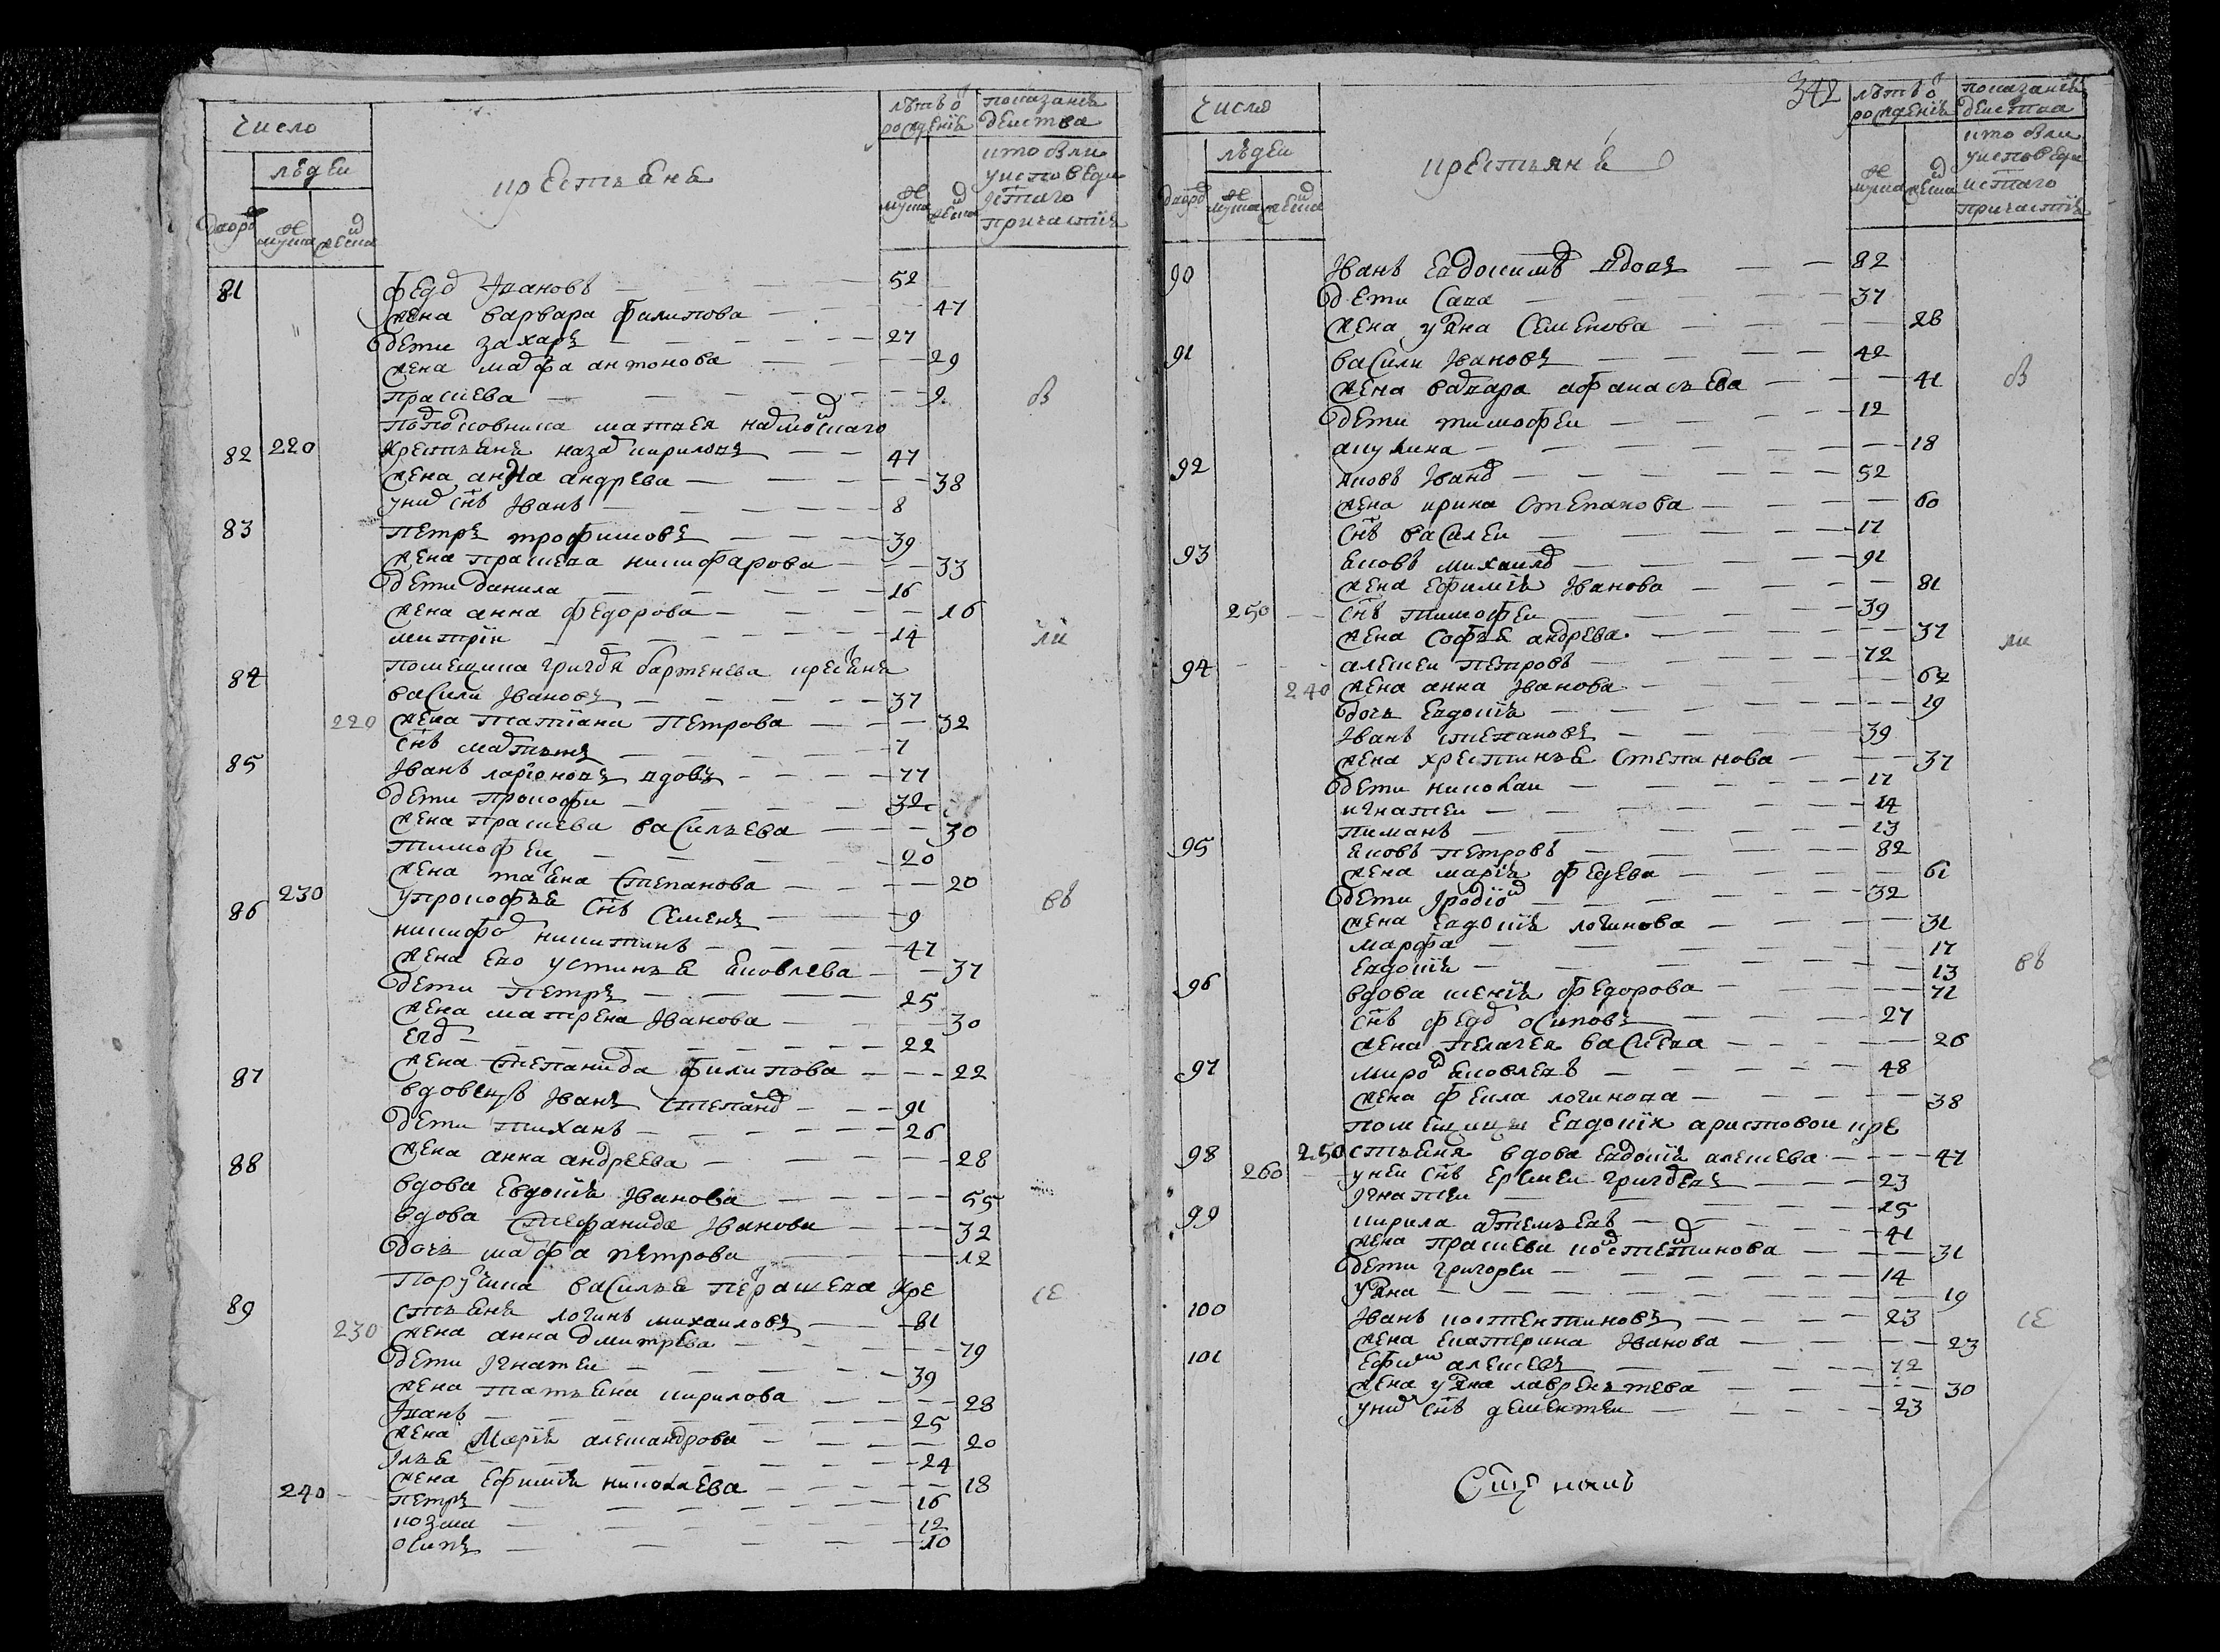 число
людеи
дворо
муска
женска
крестьяне
лѣтъ о
рождениѣ
муска
женска
показаниѣ
деиства
кто были
у исповеди
и стаго
причастиѣ
81 Федо Ивановъ 52
жена варвара филипова 47
дети захаръ 27
жена мафа антонова 29
Прасковя 2
82 220 крестьянѣ наза кириловъ 47
жена анна андрева 38
у ни снъ Иванъ 8
83 Петръ трофимовъ 39
жена праскева никифарова 33
дети данила 16
жена анна федорова 16
митрїи 14
84 помещика григоря бартенева кресенѣ
васили Ивановъ 37
220 жена татїана Петрова 32
снъ матвѣи 7
85 Иванъ ларїоновъ вдовъ 77
дети прокофи 32
жена праскева василъева 30
тимофеи 20
жена таѣна степанова 20
230 у прокофъе снъ семенъ 9
86 никифо никитинъ 47
жена ево устинъе яковлева 37
дети петръ 25
жена матрена Иванова 30
его 22
жена степанида филипова 22
87 вдовецъ Иванъ степано 91
дети тиханъ 26
жена анна андреева 28
88 вдова евдокиѣ Иванова 55
вдова степанида Иванова 32
дочь мафа петрова 12
89 поручика василъе кре
стъянѣ логинъ михаиловъ 81
230 жена анна дмитрева 79
дети Игнатеи 39
жена татъяна кирилова 28
Иванъ 25
жена Марїѣ александрова 20
Илъе 24
жена ефимїѣ николаева 18
240 петръ 16
козма 12
осипъ 10
в
ли
въ
се
342
число
людеи
дворо
муска
женска
крестьяне
лѣтъ о
рождениѣ
муска
женска
показаниѣ
деиства
кто были
у исповеди
и стаго
причастиѣ
90 Иванъ Евдокимъ вдовъ 82
дети Сава 37
жена уляна семенова 28
91 васили Ивановъ 42
жена вавара афанасъева 41
дети тимофеи 12
акулина 18
92 яковъ Ивано 52
жена ирина степанова 60
снъ василеи 17
93 яковъ михаило 91
жена ефимїѣ Иванова 81
250 снъ тимофеи 39
жена софъе андрева 37
94 алексеи петровъ 72
240 жена анна Иванова 62
дочь евдокиѣ 19
Иванъ степановъ 39
жена христинъе степанова 37
дети николаи 17
игнатеи 14
тиманъ 13
95 яковъ петровъ 82
жена марїѣ 61
дети Иродїо 32
жена евдокїѣ логинова 31
марфа 17
евдокїѣ 13
96 вдова ксенїѣ федорова 71
снъ федо осиповъ 27
жена пелагея васиева 26
97 миро яковлевъ 48
жена фекла логинова 38
помещицы евдокїи аристовои кре
98 250 стъянѣ вдова евдокиѣ алексева 47
260 у неи снъ ермеи григоревъ 23
Игнатеи 15
99 кирила атемъевъ 41
жена праскеви костетинова 31
дети григореи 14
уляна 19
100 Иванъ костентиновъ 23
жена екатерина Иванова 23
101 ефим алексевъ 72
жена уляна лаврентева 30
у ни снъ дементеи 23
в
ли
въ
се